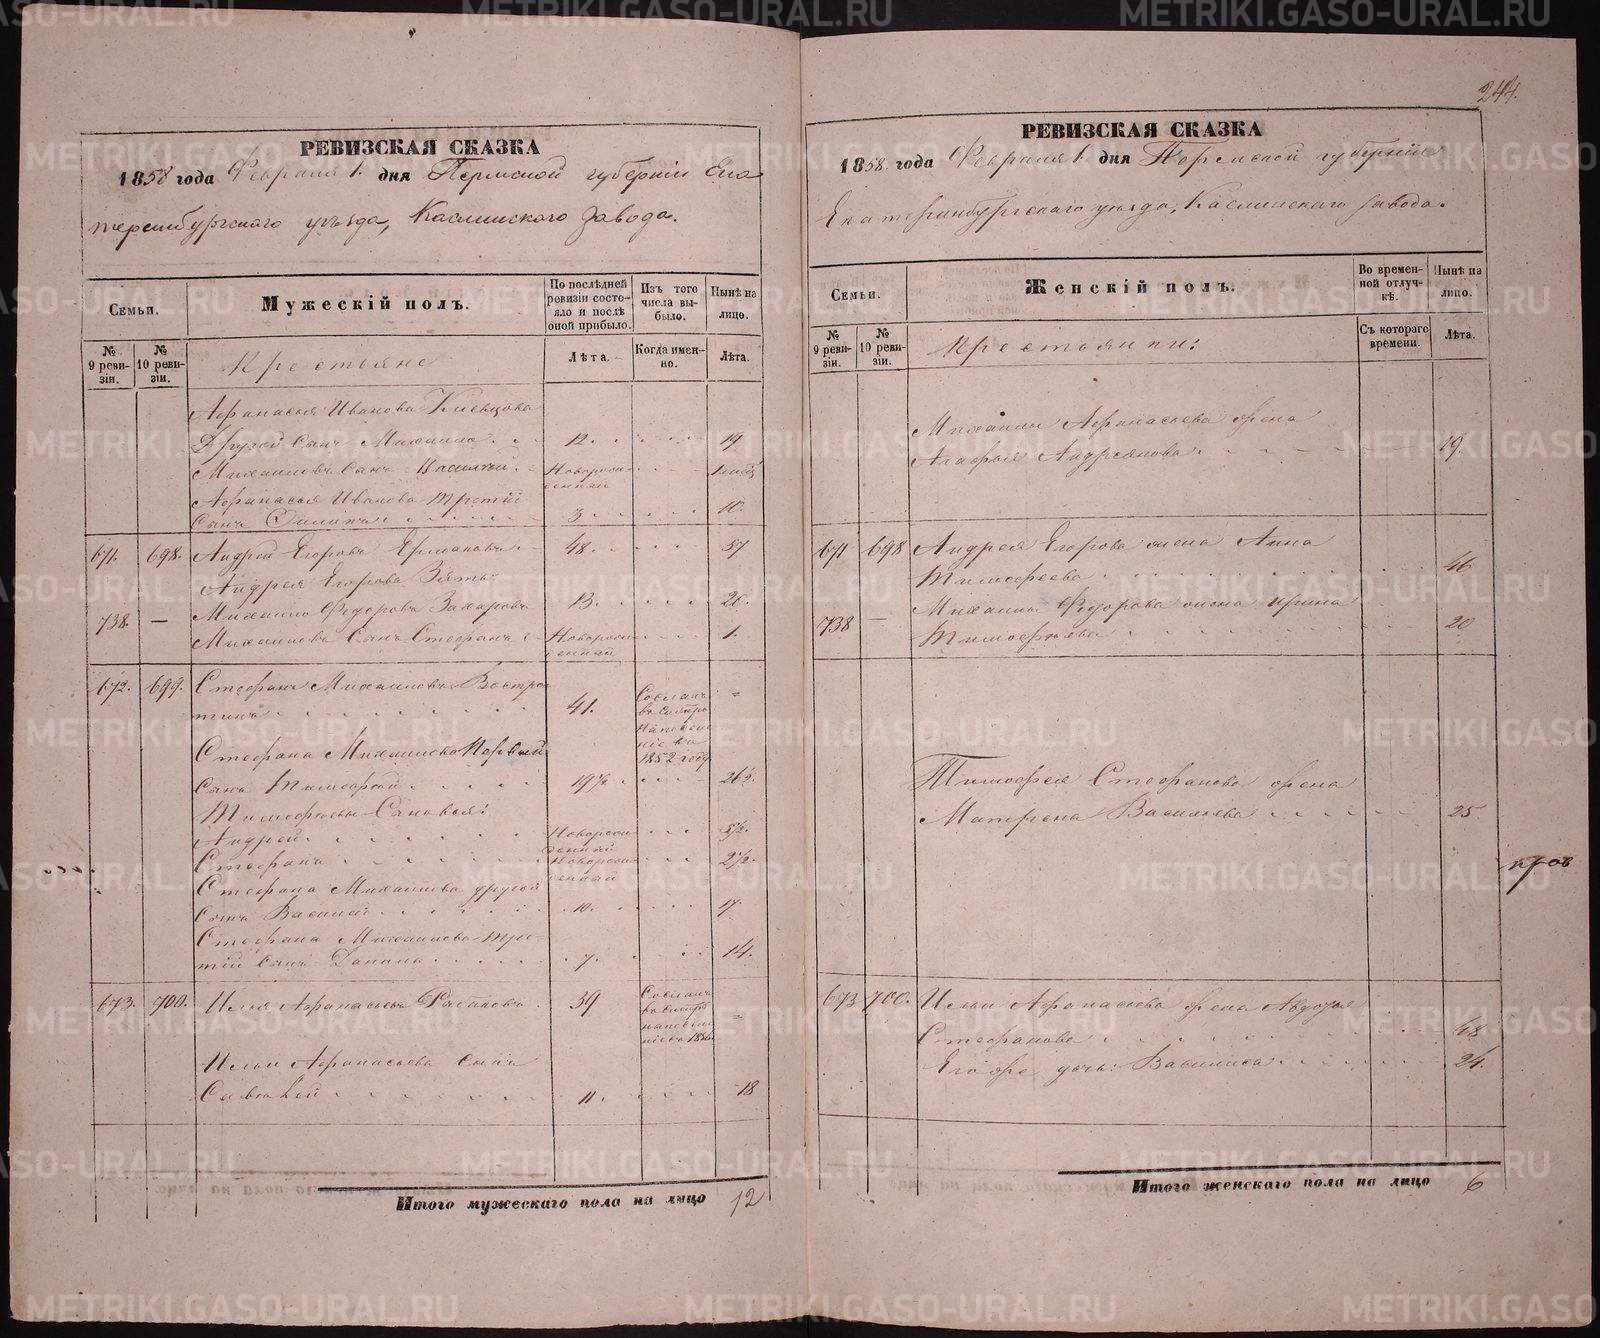 244.
РЕВИЗСКАЯ СКАЗКА
1858 года Февраля 1. дня Пермской губерніи Ека
теринбургскаго уѣзда, Каслинскаго завода.
Семьи.
Мужескій полъ.
По послѣдней ревизіи состояло и послѣ оной прибыло.
Изъ того числа выбыло.
Нынѣ на лицо.
№ 9 ревизіи.
№ 10 ревизіи.
Крестьяне
Лѣта.
Когда именно.
Лѣта.
Афанасья Иванова
Другой сынъ Михаило 12. 19
Михаиловъ сынъ Василій Новорожденный
Афанасья Иванова третій
сынъ Филипъ 3 10.
671. 698. Андрей Егоровъ Ермаковъ 48. 57
Андрея Егорова Зять:
738. — Михаило Федоровъ Захаровъ 13. 20.
Михаиловъ сынъ Стефанъ Новорожденный 1.
672. 699. Стефанъ Михаиловъ Востро
тинъ 41. Сосланъ въ Сибирь на поселеніе въ 1852 году "
Стефана Михаилова Первый
сынъ Тимофей 19½ 26½
Тимофеевы Сыновья:
Андрей Новорожденный 5½
Стефанъ Новорожденный 2½
Стефана Михаилова другой
сынъ Василей 10. 17
Стефана Михаилова тре
тій сынъ Данило 7 14.
673. 700. Илья Афанасьевъ 39 Сосланъ въ Сибирь на поселеніе въ "
Ильи Афанасьева сынъ
Савватей 11 18
Итого мужескаго пола на лицо 12
РЕВИЗСКАЯ СКАЗКА
1858 года Февраля 1. дня Пермской губерніи
Екатеринбургскаго уѣзда, Каслинскаго завода.
Семьи.
Женскій полъ.
Во временной отлучкѣ.
Нынѣ на лицо.
№ 9 ревизіи.
№ 10 ревизіи.
Крестьянки:
Съ котораго времени.
Лѣта.
Михаила Афанасьева жена
Агафья Андреянова 19.
671 698 Андрея Егорова жена Анна
Тимофеева 46
738 — Михаила Федорова жена Ирина
Тимофѣева 20
Тимофея Стефанова жена
Матрена Васильева 25
673 700. Ильи Афанасьева жена Авдотья
Стефанова 48
Его же дочь: Василиса 24.
Итого женскаго пола на лицо 6
METRIKI.GASO-URAL.RU